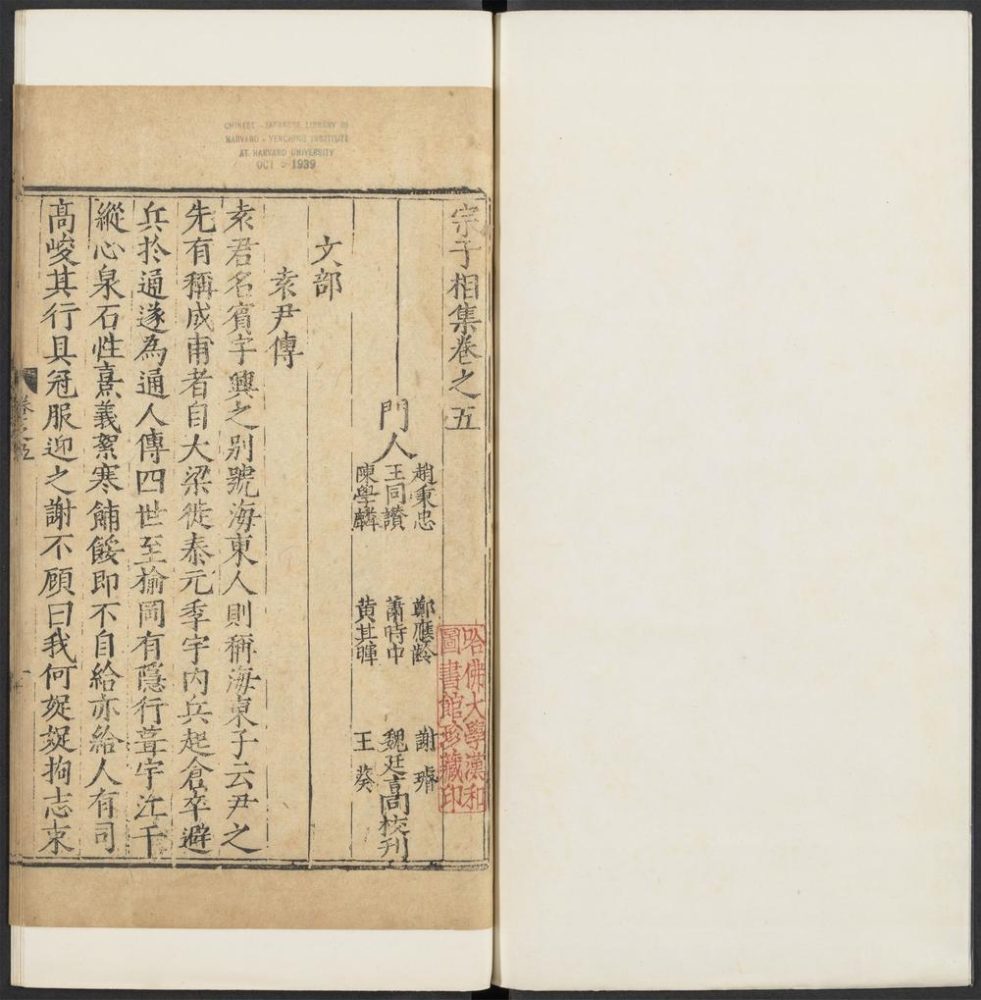 CHINESE - JAPANESE LIBRARY OF
HARVARD - YENCHING INSTITUTE
AT HARVARD UNIVERSITY
OCT 1939
宗子相集卷之五
哈佛大學漢和
圖書館珍藏印
門人
趙秉忠 鄭應齡 謝
王同讚 蕭時中 魏廷高校刊
陳學麟 黃其暉 王葵
文部
袁尹傳
袁君名賓字興之别號海東人則稱海東子云尹之
先有稱成甫者自大梁徙泰元季宇内兵起倉卒避
兵於通遂為通人傳四世至榆岡有隱行葺宇江干
縱心泉石性熹義絮寒餔餒即不自給亦給人有司
高峻其行具冠服迎之謝不顧曰我何娖娖拘志束
卷之五
一